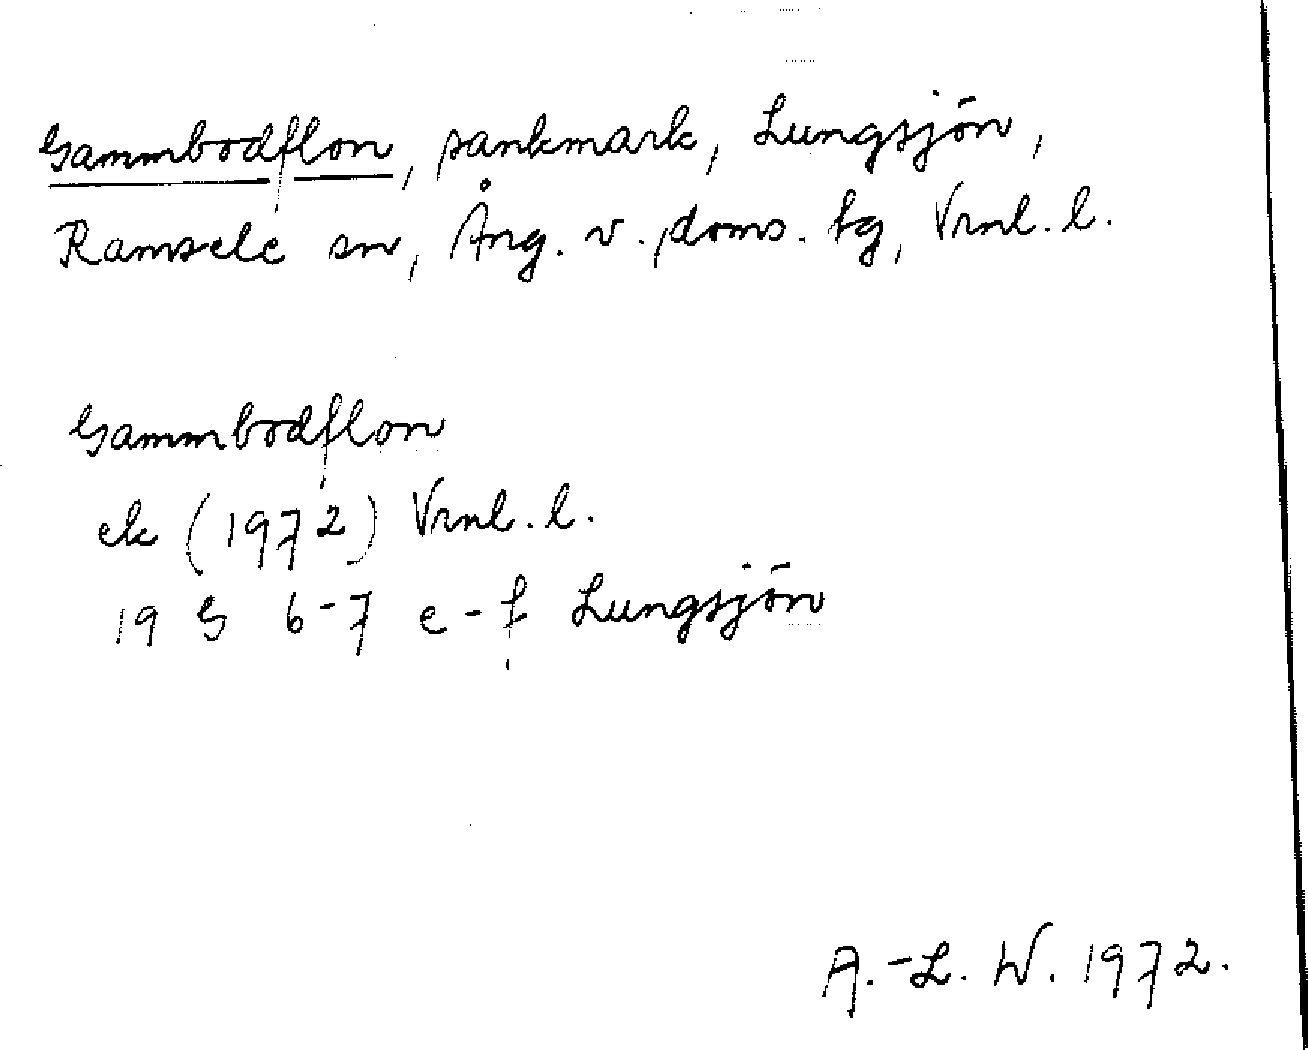 Gammbodflon, sankmark, Lungsjön,
Ramsele sn, Ång. v. doms. tg, Vrnl. l.
Gammbodflon
ek (1972) Vrnl. l.
19 G 6-7 e-f Lungsjön
A.-L. W. 1972.